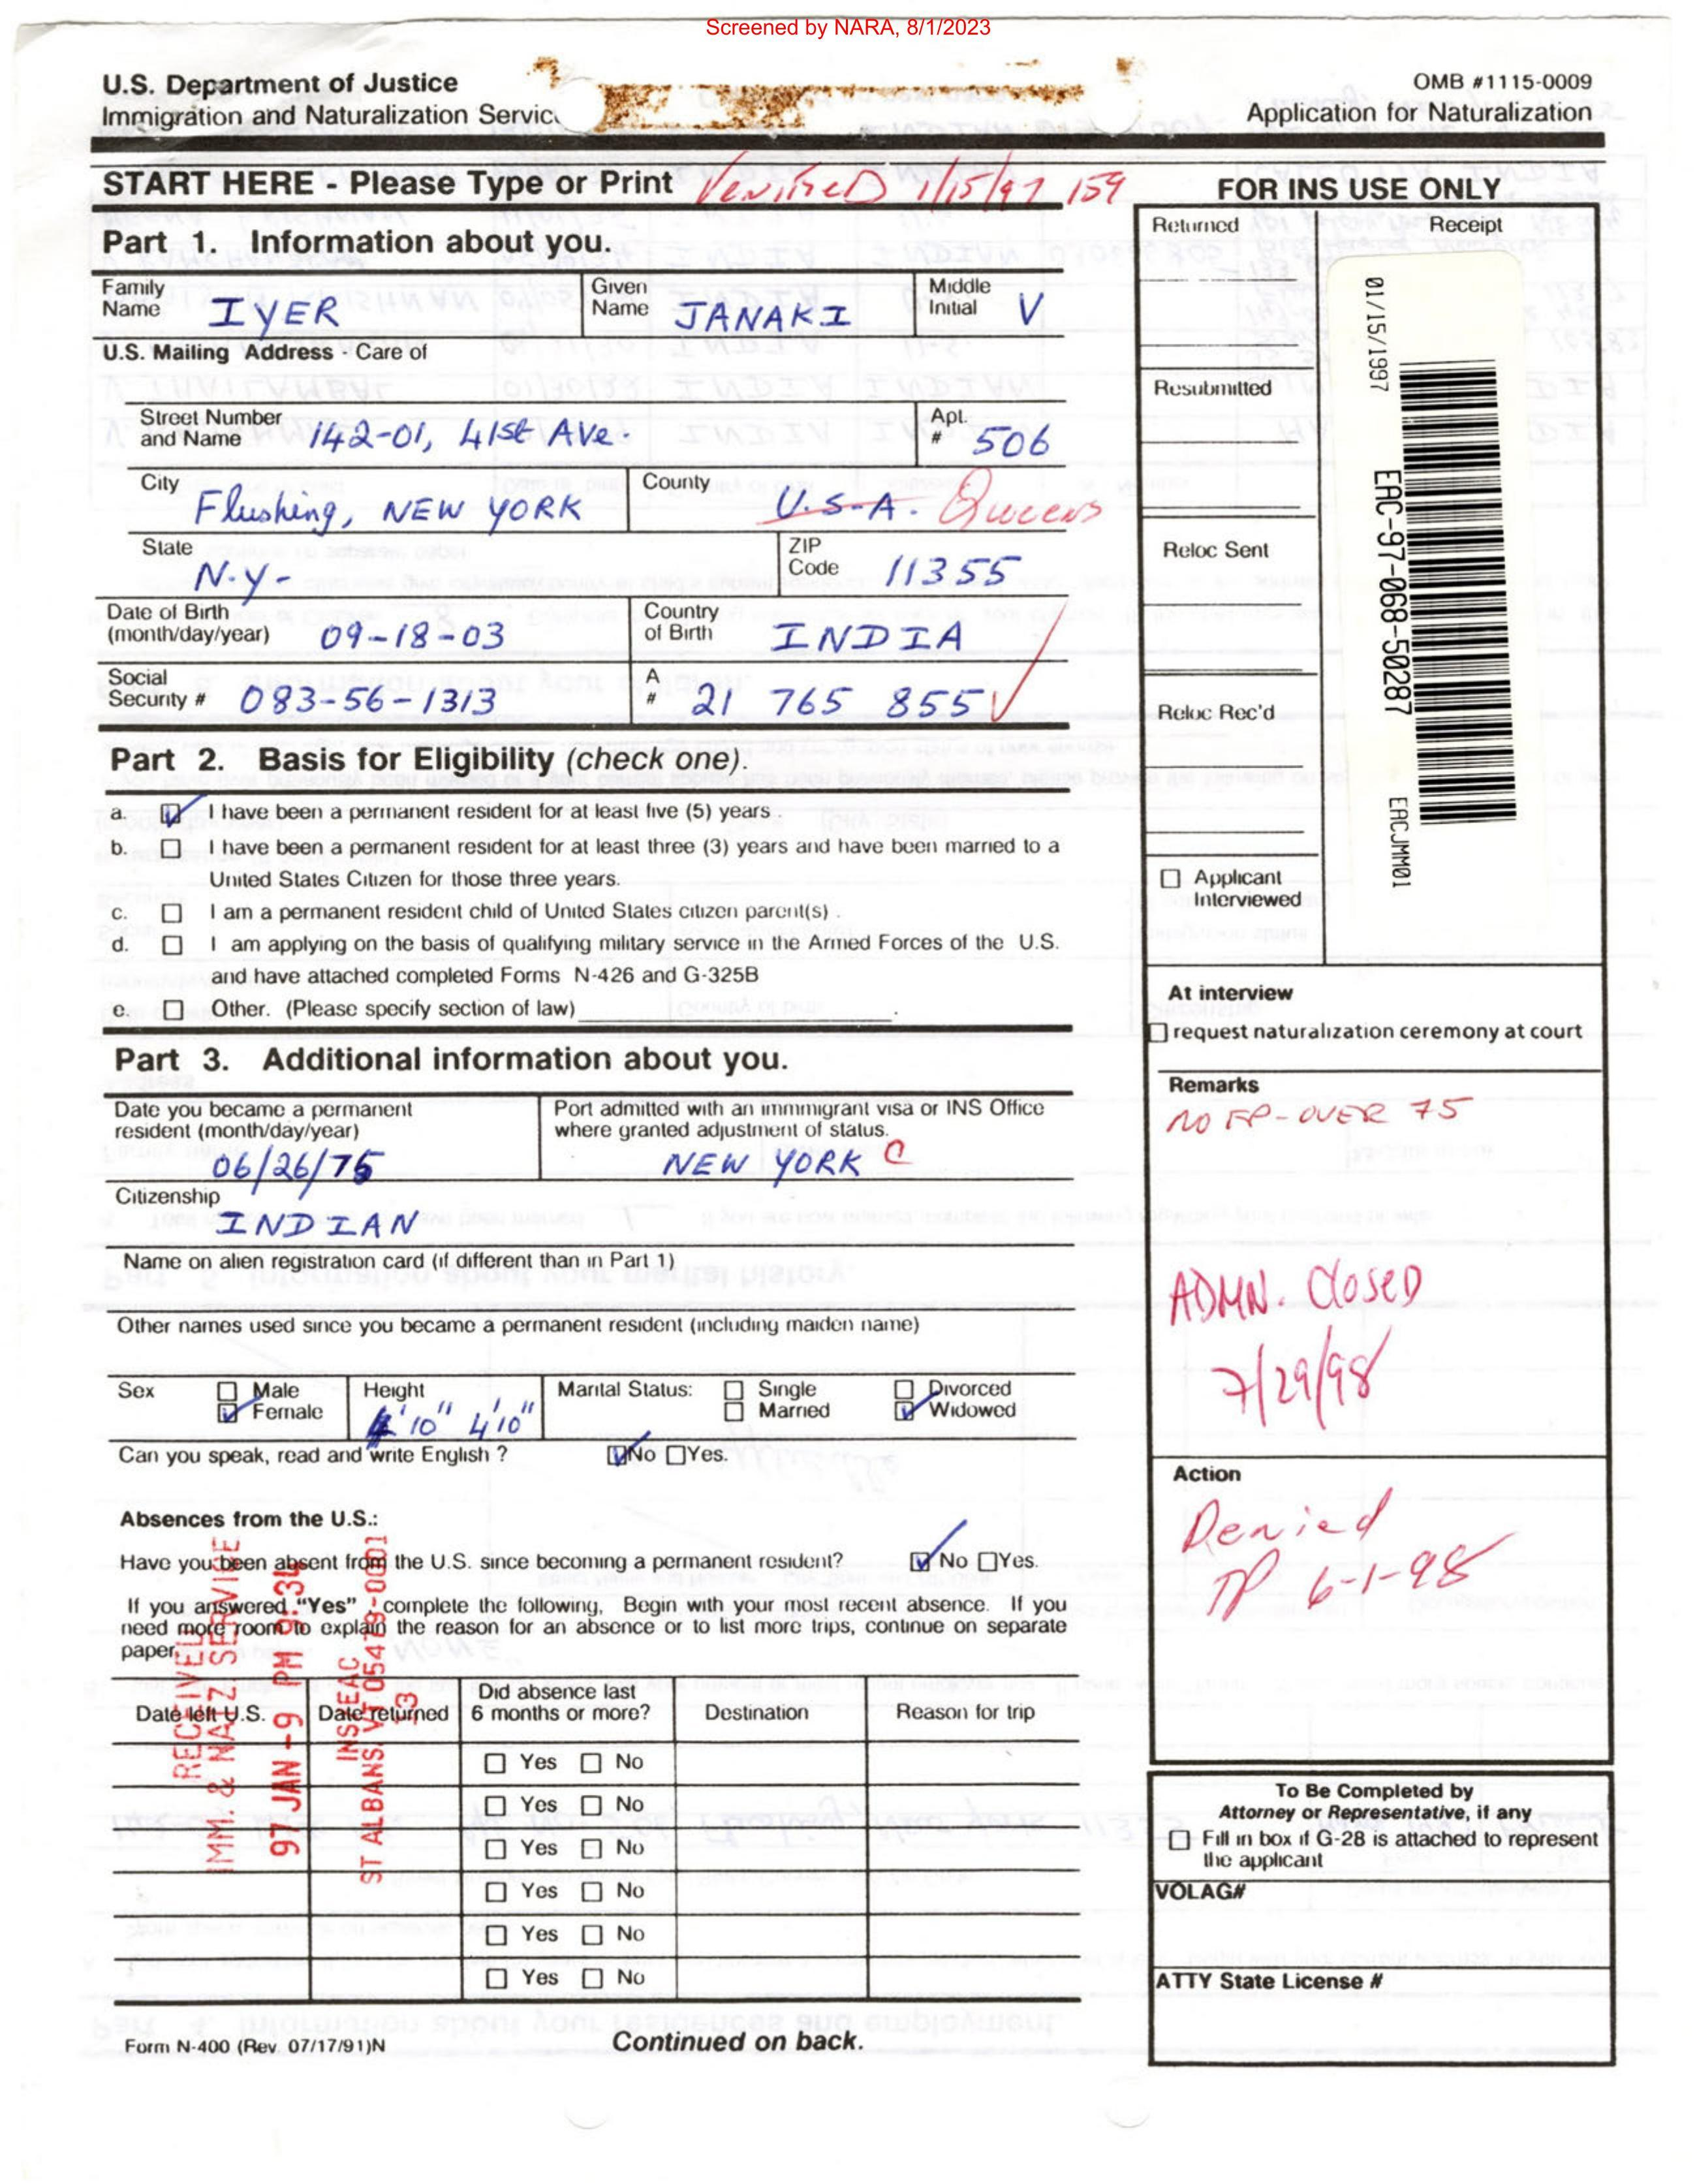 Screened by NARA, 8/1/2023
U.S. Department of Justice
Immigration and Naturalization Servic
OMB #1115-0009
Application for Naturalization
START HERE - Please Type or Print
Verified 1/15/97 159
Part 1. Information about you.
Family Name IYER
Given Name JANAKI
Middle Initial V
U.S. Mailing Address - Care of
Street Number and Name 142-01, 41st Ave.
Apt. # 506
City Flushing, NEW YORK
County U.S.A. Queens
State N.Y-
ZIP Code 11355
Date of Birth (month/day/year) 09-18-03
Country of Birth INDIA
Social Security # 083-56-1313
A # 21 765 855
Part 2. Basis for Eligibility (check one).
a. I have been a permanent resident for at least five (5) years.
b. I have been a permanent resident for at least three (3) years and have been married to a
United States Citizen for those three years.
c. I am a permanent resident child of United States citizen parent(s) .
d. I am applying on the basis of qualifying military service in the Armed Forces of the U.S.
and have attached completed Forms N-426 and G-325B
e. Other. (Please specify section of law)
Part 3. Additional information about you.
Date you became a permanent
resident (month/day/year)
06/26/75
Port admitted with an immmigrant visa or INS Office
where granted adjustment of status.
NEW YORK C
Citizenship
INDIAN
Name on alien registration card (if different than in Part 1)
Other names used since you became a permanent resident (including maiden name)
Sex Male Female
Height 4'10" 4'10"
Marital Status: Single Married Divorced Widowed
Can you speak, read and write English ? No Yes.
Absences from the U.S.:
Have you been absent from the U.S. since becoming a permanent resident? No Yes.
If you answered "Yes" , complete the following, Begin with your most recent absence. If you
need more room to explain the reason for an absence or to list more trips, continue on separate
paper.
Date left U.S.
Date returned
Did absence last
6 months or more?
Destination
Reason for trip
Yes No
Yes No
Yes No
Yes No
Yes No
Yes No
RECEIVED
IMM. & NATZ SERVICE
97 JAN -9 PM 9:34
INS/EAC
ST ALBANS, VT 05479-0001
13
Form N-400 (Rev 07/17/91)N
Continued on back.
FOR INS USE ONLY
Returned
Receipt
Resubmitted
Reloc Sent
Reloc Rec'd
Applicant
Interviewed
01/15/1997
EAC-97-068-50287
EACJMM01
At interview
request naturalization ceremony at court
Remarks
NO FP-OVER 75
ADMN. Closed
7/29/98
Action
Denied
6-1-98
To Be Completed by
Attorney or Representative, if any
Fill in box if G-28 is attached to represent
the applicant
VOLAG#
ATTY State License #